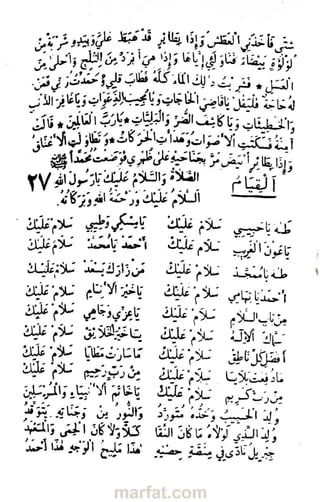 شتى فأخذني العطش وإذا بطائر قد هبط علي وبيده شربة من
لؤلؤة بيضاء فناولني إياها وإذا هي أبرد من الثلج وأحلى من
العسل * فشربت ذلك الماء كله فطاب قلبي وحمدت ربي فمن
له حاجة فليقل يا قاضي الحاجات ويا مجيب الدعوات ويا غافر الذنب
والخطيئات ويا كاشف الضر والبليات يا رب العالمين * قالت
آمنة فسكنت الأصوات وهدأت الحركات * وتطاولت الأعناق
وإذا بطائر أبيض مر بجناحيه على ظهري فوضعت محمدا ﷺ
القيام الصلاة والسلام عليك يا رسول الله ٢٧
السلام عليك ورحمة الله وبركاته
طه يا حبيبي سلام عليك يا مسكي وطيبي سلام عليك
يا عون الغريب سلام عليك أحمد يا محمد سلام عليك
طه يا ممجد سلام عليك من زارك يسعد سلام عليك
أحمد يا تهامي سلام عليك يا خير الأنام سلام عليك
من باب السلام سلام عليك يا عزي وجاهي سلام عليك
سلام عليك يا خير الخلائق سلام عليك
أفضل كل ناطق سلام عليك ما سارت مطايا سلام عليك
ما دفعت بلايا سلام عليك من رب رحيم سلام عليك
من رب كريم سلام عليك يا خاتم الأنبياء والمرسلين
ولد الحبيب وخده متورد والنور من وجناته يتوقد
ولد الذي لولاه ما كان النقا كلا ولا كان الحمى والمعهد
جبريل نادى في منصة حسنه هذا مليح الوجه هذا أحمد
marfat.com